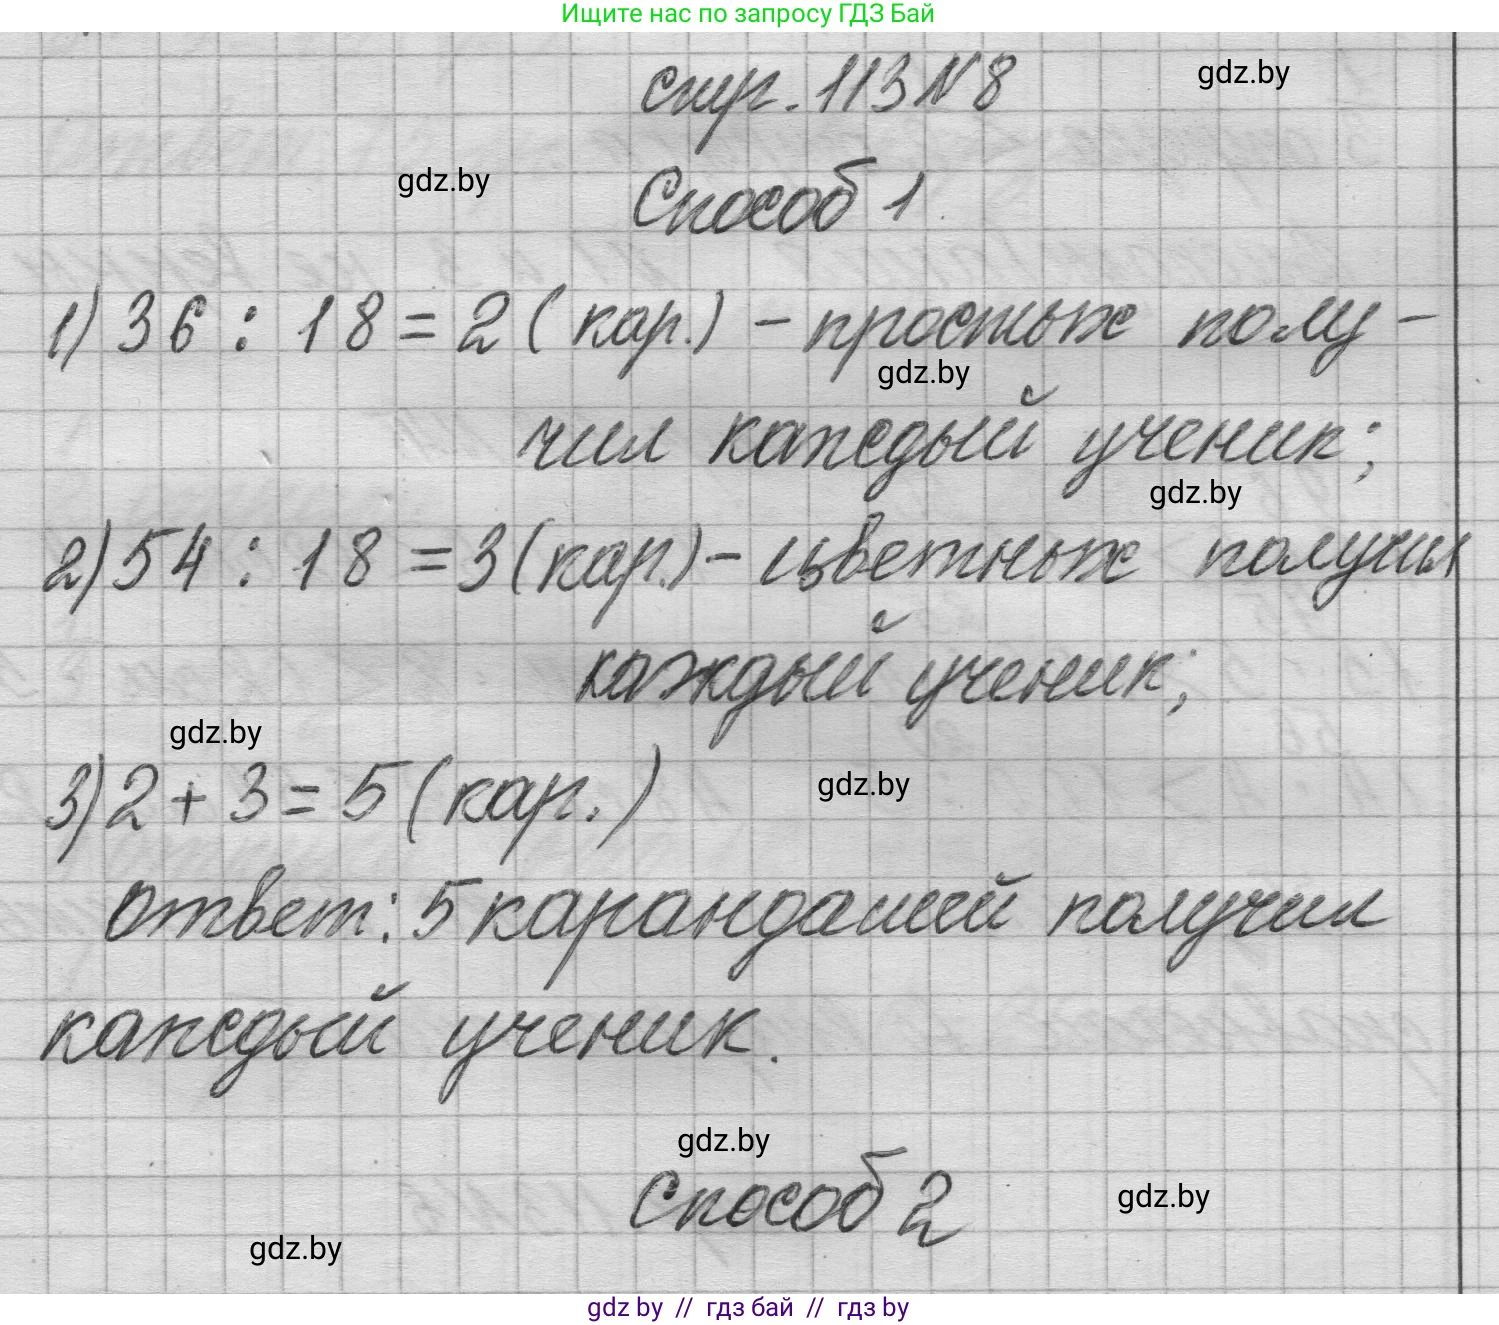 Ищите нас по запросу ГДЗ Бай
стр. 113 N 8
gdz.by
gdz.by
Способ 1
1) 36 : 18 = 2 (кар.) - простых полу -
gdz.by
чил каждый ученик;
gdz.by
2) 54 : 18 = 3 (кар.) - цветных получил
каждый ученик;
gdz.by
3) 2 + 3 = 5 (кар.)
gdz.by
ответ: 5 карандашей получил
каждый ученик.
gdz.by
Способ 2
gdz.by
gdz.by
gdz by // гдз бай // гдз by